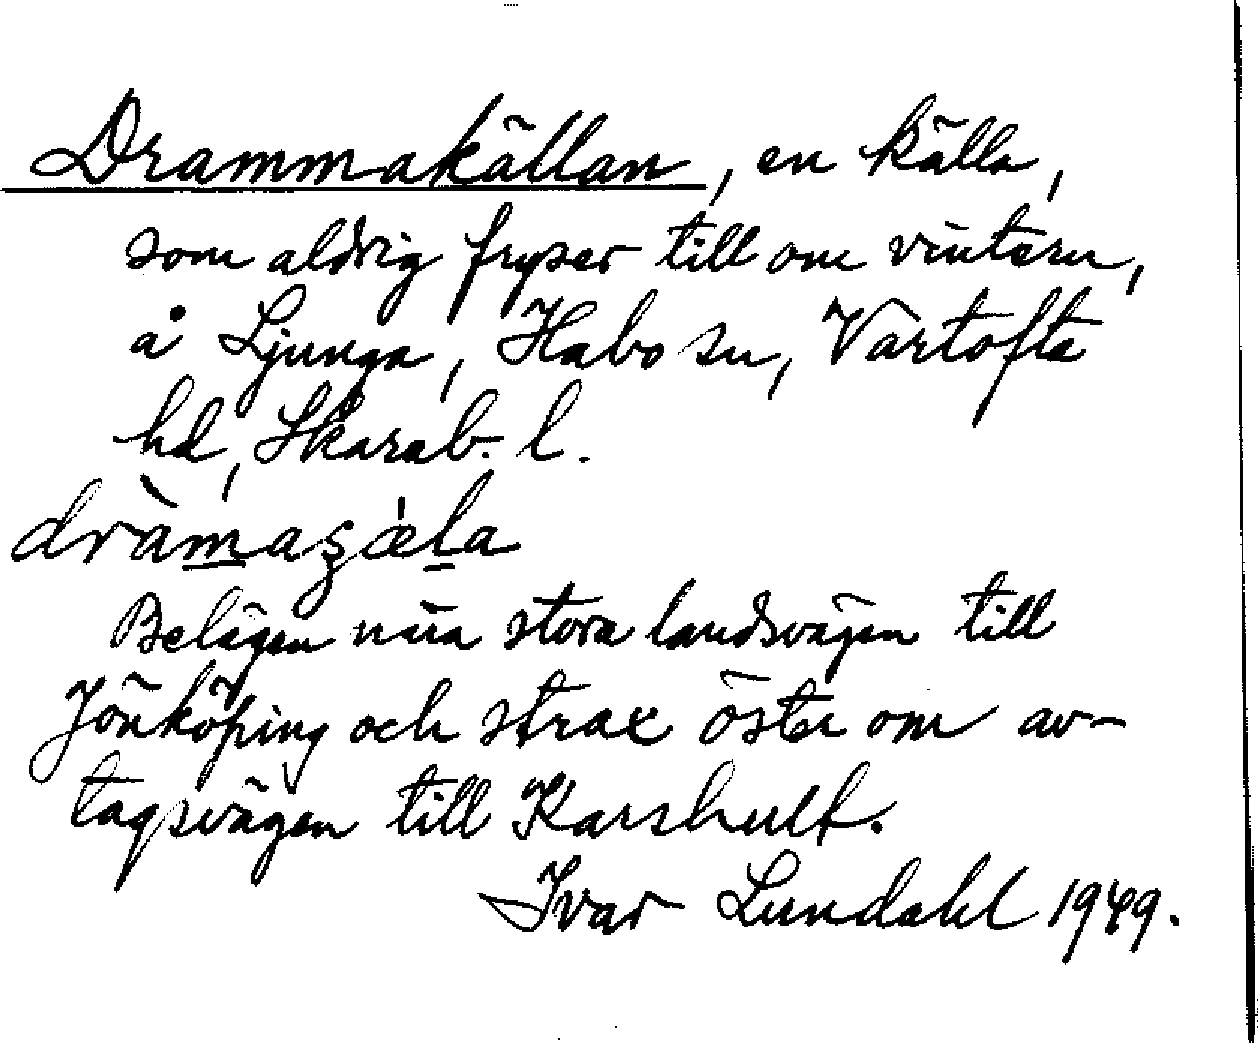 Drammakällan, en källa,
som aldrig fryser till om vintern,
å Ljunga, Habo sn, Vartofta
hd, Skarab. l.
dràmaʂæ̍la
Belägen nära stora landsvägen till
Jönköping och strax öster om av-
tagsvägen till Karshult.
Ivar Lundahl 1949.